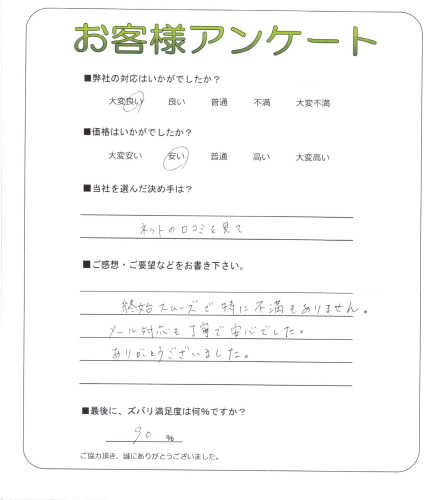 お客様アンケート
■弊社の対応はいかがでしたか？
大変良い 良い 普通 不満 大変不満
■価格はいかがでしたか？
大変安い 安い 普通 高い 大変高い
■当社を選んだ決め手は？
ネットの口コミを見て
■ご感想・ご要望などをお書き下さい。
終始スムーズで特に不満もありません。
メール対応も丁寧で安心でした。
ありがとうございました。
■最後に、ズバリ満足度は何%ですか？
90 %
ご協力頂き、誠にありがとうございました。